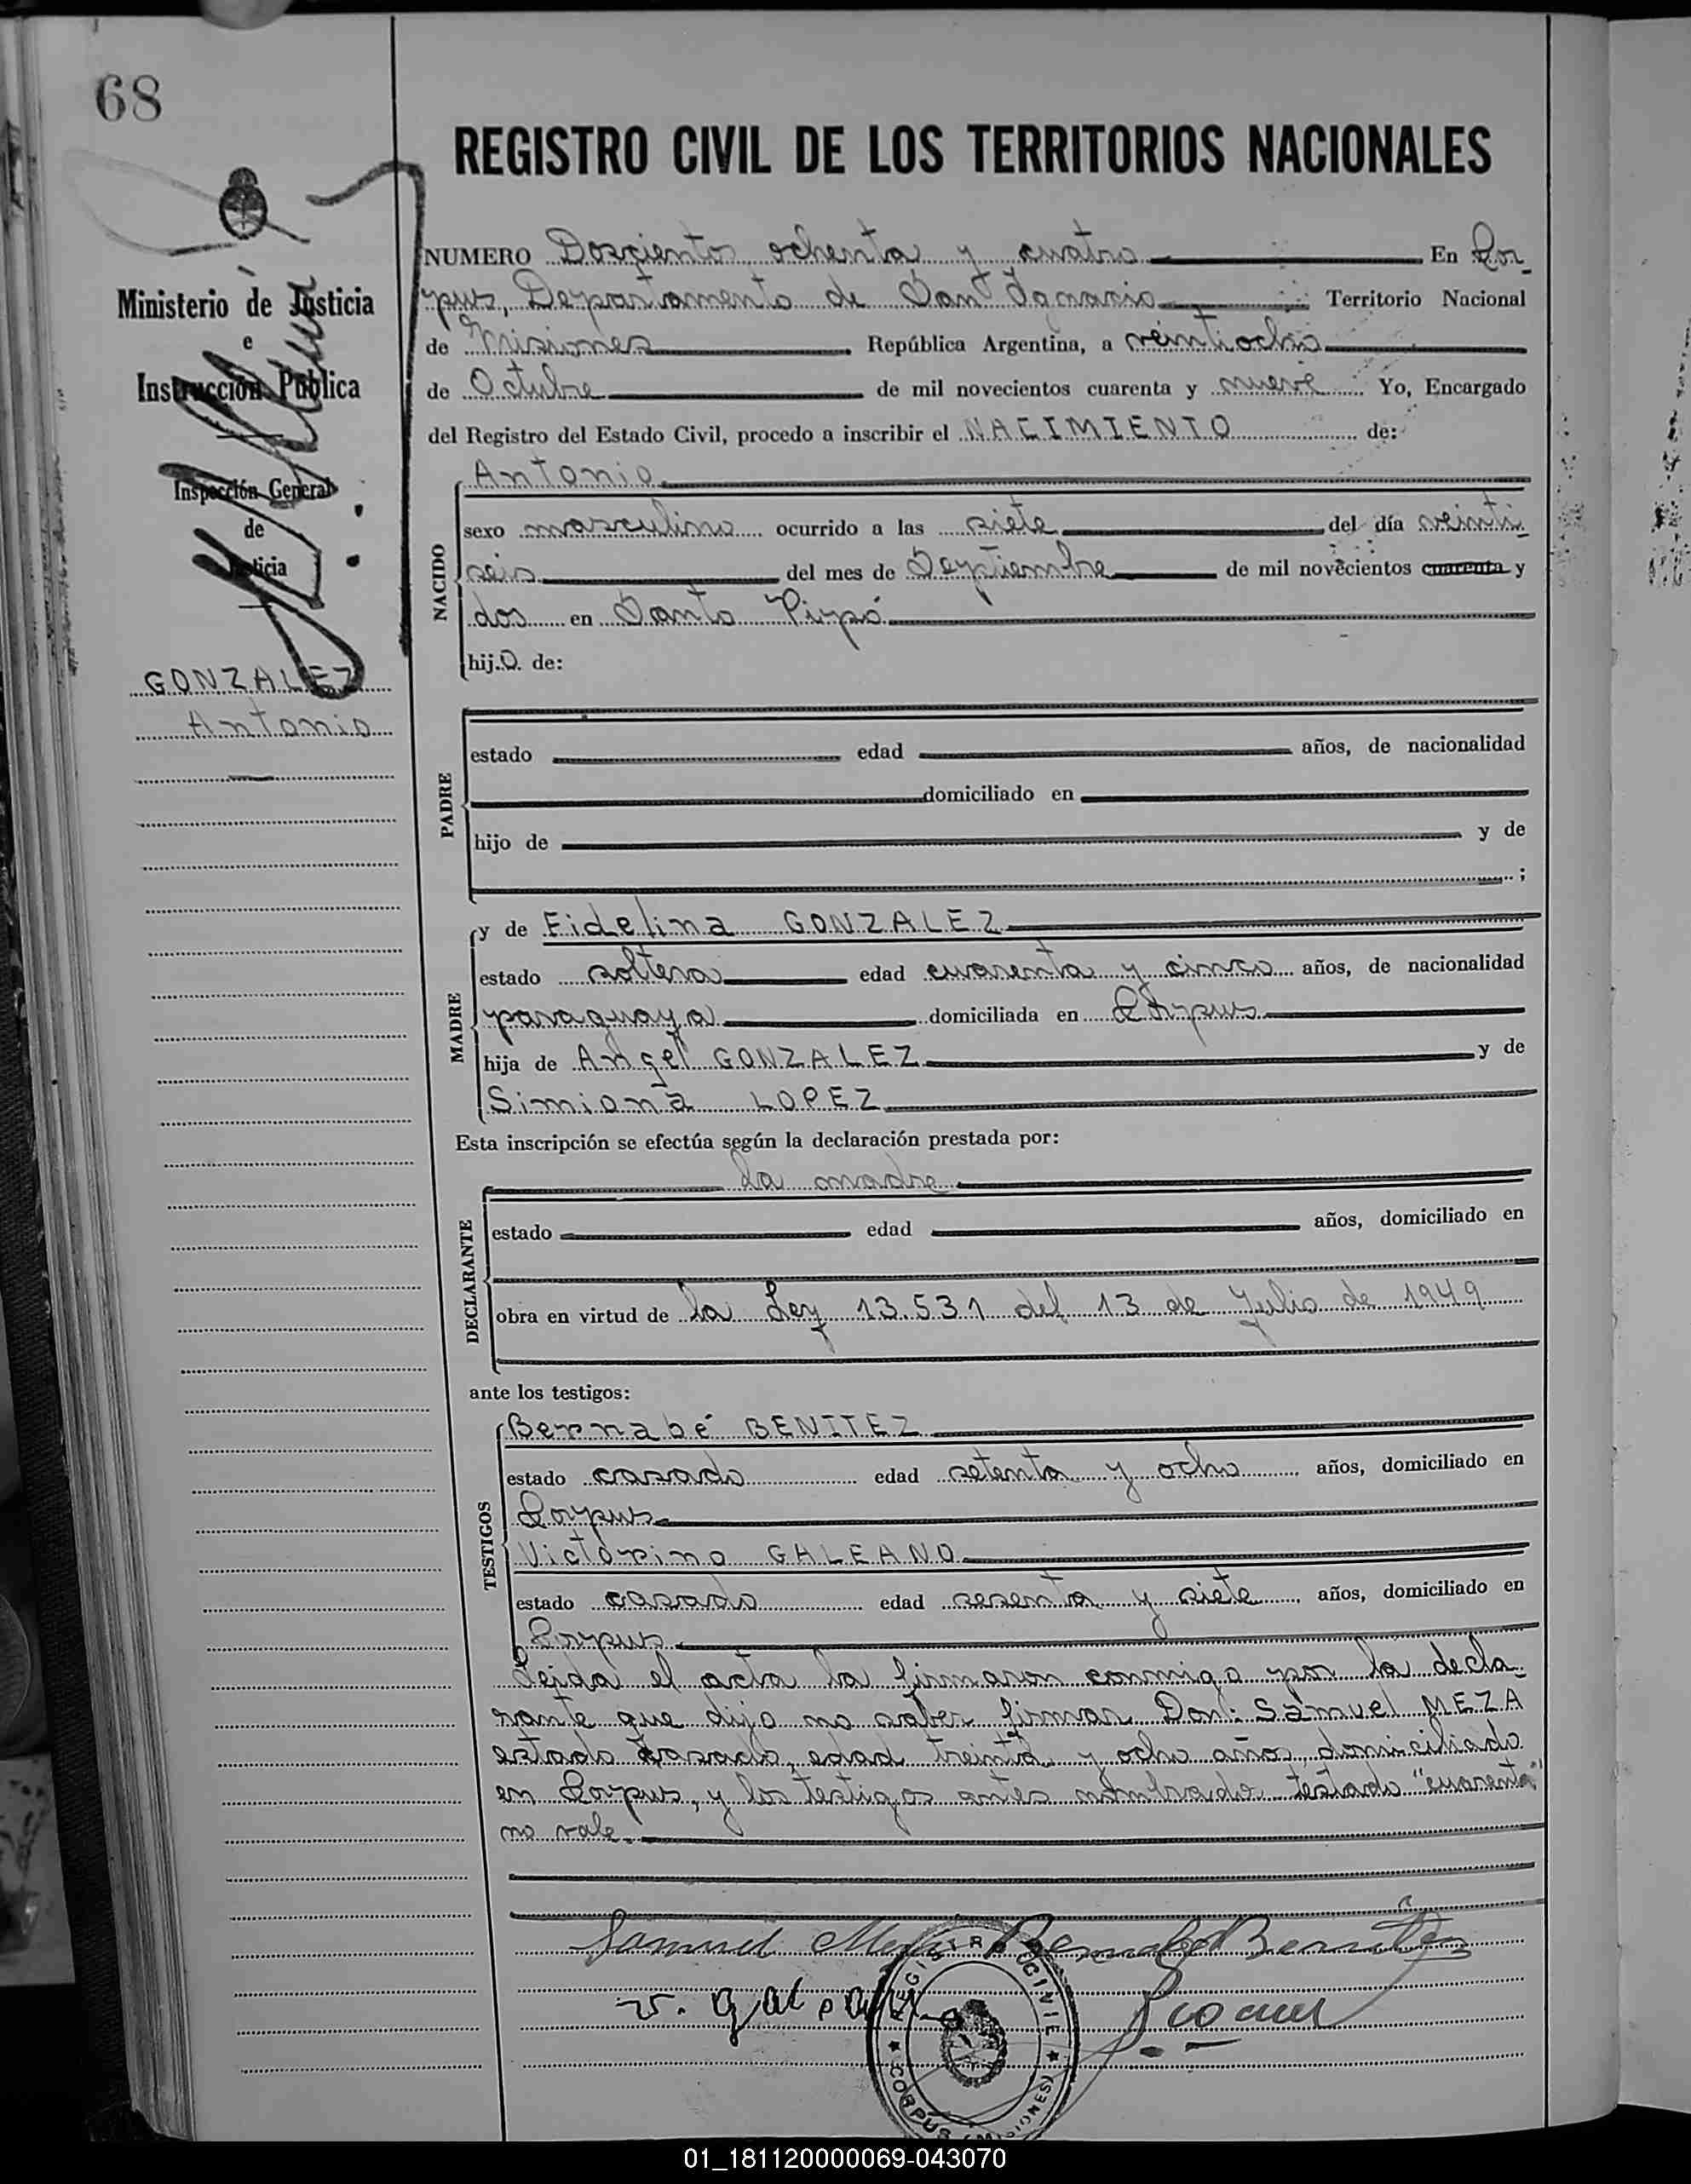 68
REGISTRO CIVIL DE LOS TERRITORIOS NACIONALES
Ministerio de Justicia
e
Instrucción Pública
Inspección General
de
Justicia
GONZALEZ
Antonio
NUMERO Doscientos ochenta y cuatro En Cor-
pus, Departamento de San Ignacio Territorio Nacional
de Misiones República Argentina, a veintiocho
de Octubre de mil novecientos cuarenta y nueve Yo, Encargado
del Registro del Estado Civil, procedo a inscribir el NACIMIENTO de:
Antonio
NACIDO
sexo masculino ocurrido a las siete del día veinti
seis del mes de Septiembre de mil novecientos cuarenta y
dos en Santo Pipó
hijo de:
PADRE
estado edad años, de nacionalidad
domiciliado en
hijo de y de
;
MADRE
y de Fidelina GONZALEZ
estado soltera edad cuarenta y cinco años, de nacionalidad
paraguaya domiciliada en Corpus
hija de Angel GONZALEZ y de
Simiona LOPEZ
Esta inscripción se efectúa según la declaración prestada por:
la madre
DECLARANTE
estado edad años, domiciliado en
obra en virtud de la Ley 13.531 del 13 de Julio de 1949
ante los testigos:
TESTIGOS
Bernabé BENITEZ
estado casado edad setenta y ocho años, domiciliado en
Corpus
Victorino GALEANO
estado casado edad sesenta y siete años, domiciliado en
Corpus
Leida el acta la firmaron conmigo por la decla-
rante que dijo no saber firmar Don: Samuel MEZA
estado casado, edad treinta y ocho años, domiciliado
en Corpus, y los testigos antes nombrado testado "cuarenta"
no vale.
Samuel Meza Bernabe Benitez
v. galeano
REGISTRO CIVIL
CORPUS (MISIONES)
01_181120000069-043070